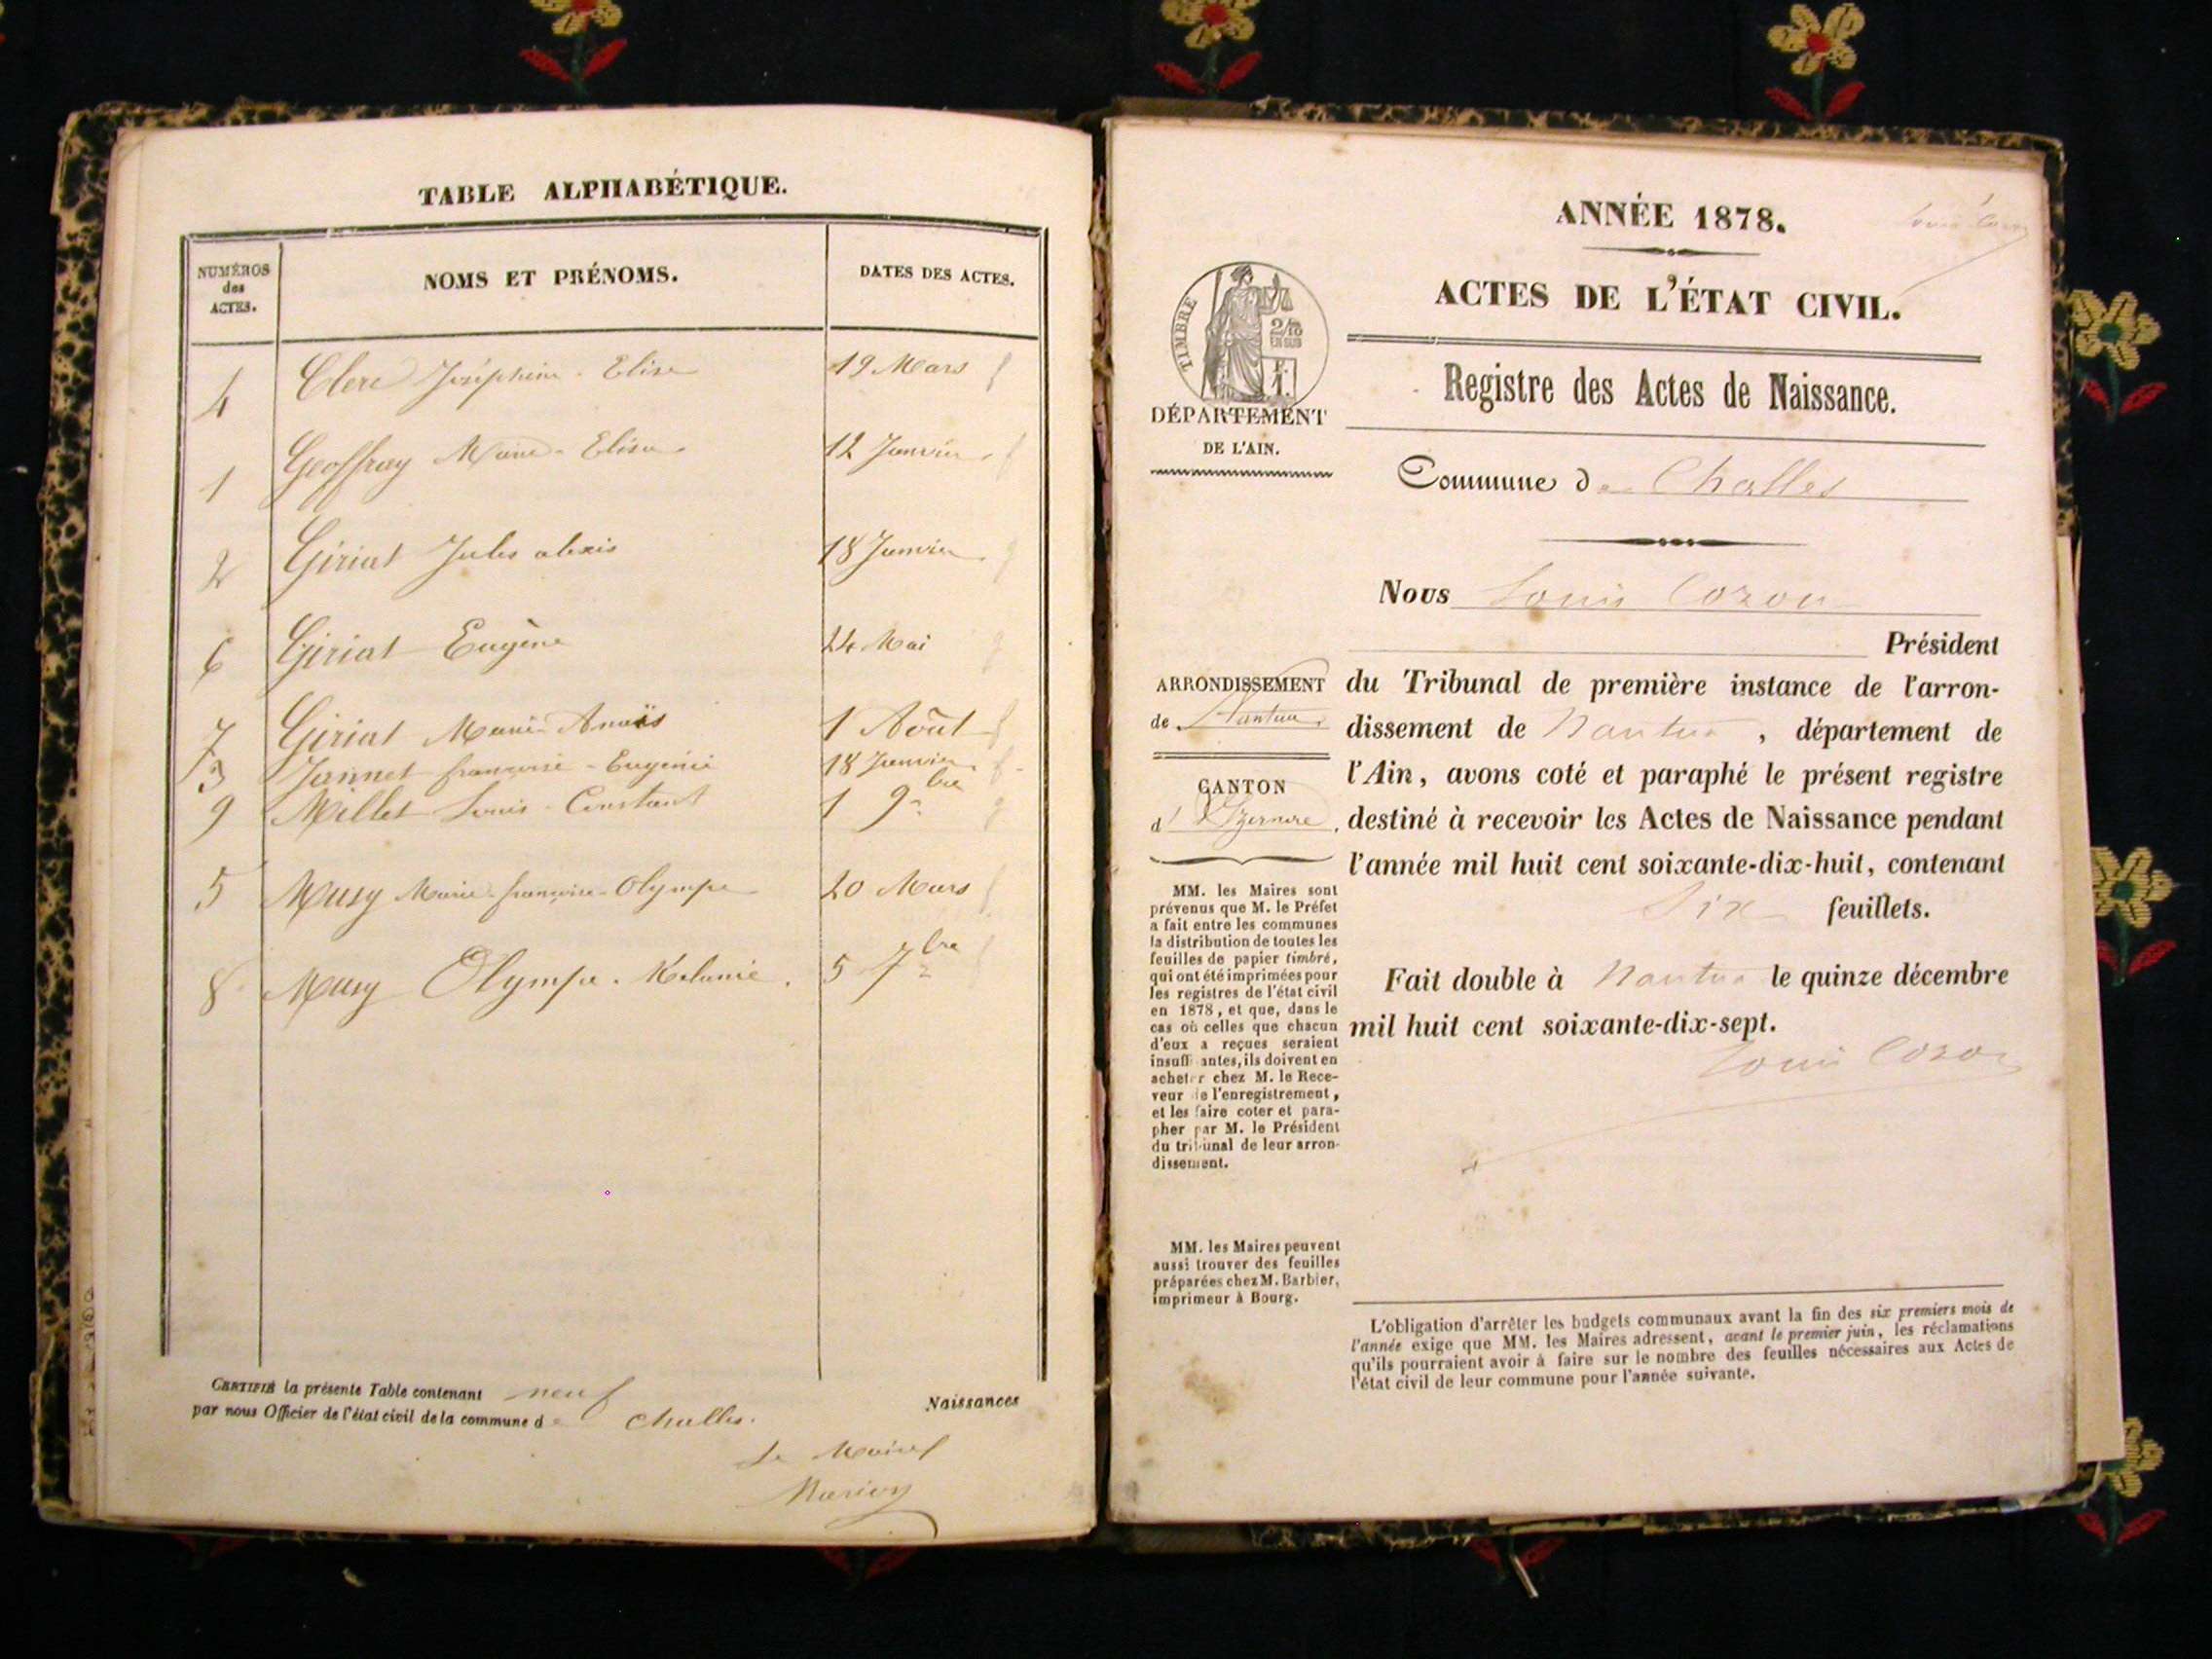 TABLE ALPHABÉTIQUE.
NUMÉROS des ACTES.
NOMS ET PRÉNOMS.
DATES DES ACTES.
4 Clerc Joséphine - Elise 19 Mars f
1 Geoffray Marie - Elisa 12 Janvier f
2 Giriat Jules alexis 18 Janvier g
6 Giriat Eugène 24 Mai g
7 Giriat Marie Anaïs 1 Août f
3 Jannet françoise - Eugénie 18 Janvier f
9 Millet Louis - Constant 1 9bre g
5 Musy Marie - françoise - Olympe 20 Mars f
8 Musy Olympe. Melanie. 5 7bre f
CERTIFIÉ la présente Table contenant neuf Naissances
par nous Officier de l'état civil de la commune de Challes.
Le Maire
ANNÉE 1878.
ACTES DE L'ÉTAT CIVIL.
TIMBRE
2/10
EN SUS
1 F.
DÉPARTEMENT
DE L'AIN.
Registre des Actes de Naissance.
Commune de Challes
Nous Louis Cozon
Président
ARRONDISSEMENT
de Nantua
CANTON
d'Izernore.
du Tribunal de première instance de l'arron-
dissement de Nantua, département de
l'Ain, avons coté et paraphé le présent registre
destiné à recevoir les Actes de Naissance pendant
l'année mil huit cent soixante-dix-huit, contenant
Six feuillets.
Fait double à Nantua le quinze décembre
mil huit cent soixante-dix-sept.
Louis Cozon
MM. les Maires sont
prévenus que M. le Préfet
a fait entre les communes
la distribution de toutes les
feuilles de papier timbré,
qui ont été imprimées pour
les registres de l'état civil
en 1878, et que, dans le
cas où celles que chacun
d'eux a reçues seraient
insuffisantes, ils doivent en
acheter chez M. le Rece-
veur de l'enregistrement,
et les faire coter et para-
pher par M. le Président
du tribunal de leur arron-
dissement.
MM. les Maires peuvent
aussi trouver des feuilles
préparées chez M. Barbier,
imprimeur à Bourg.
L'obligation d'arrêter les budgets communaux avant la fin des six premiers mois de
l'année exige que MM. les Maires adressent, avant le premier juin, les réclamations
qu'ils pourraient avoir à faire sur le nombre des feuilles nécessaires aux Actes de
l'état civil de leur commune pour l'année suivante.